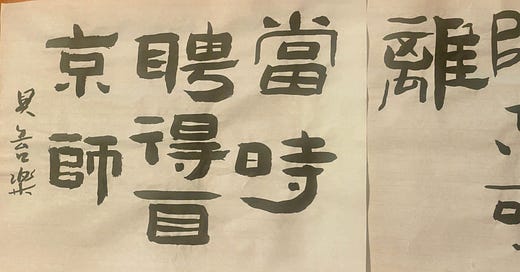 離
當時
聘得百
京師
貝 樂